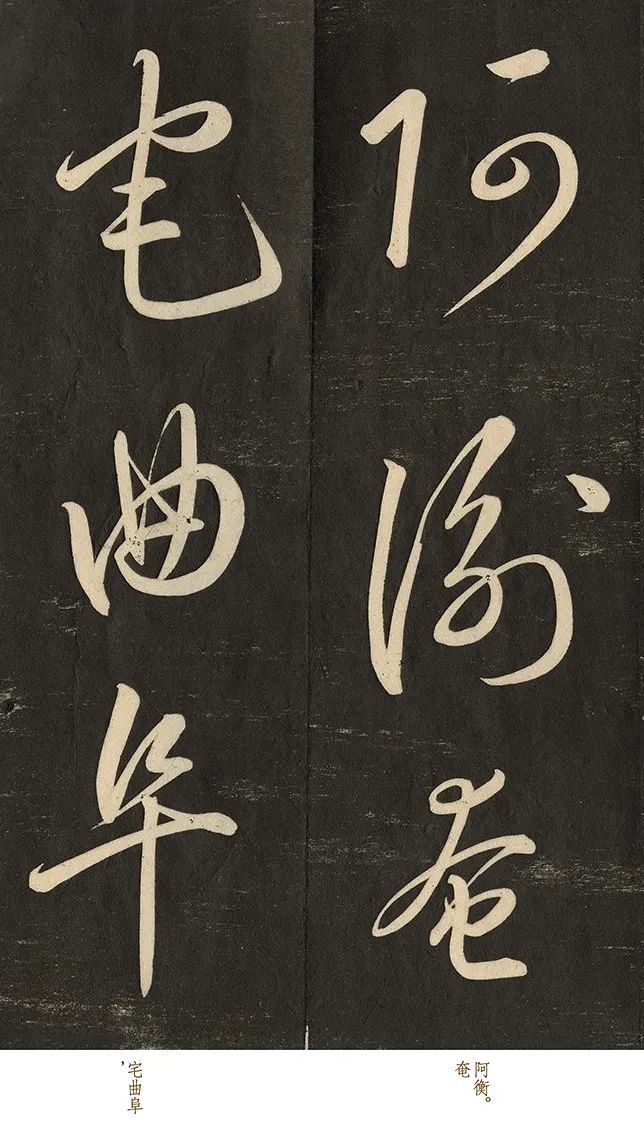 阿衡奄
宅曲阜
阿衡。奄
宅曲阜，